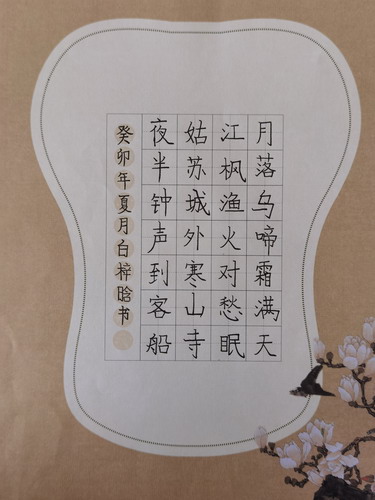 月落乌啼霜满天
江枫渔火对愁眠
姑苏城外寒山寺
夜半钟声到客船
癸卯年夏月白梓晗书